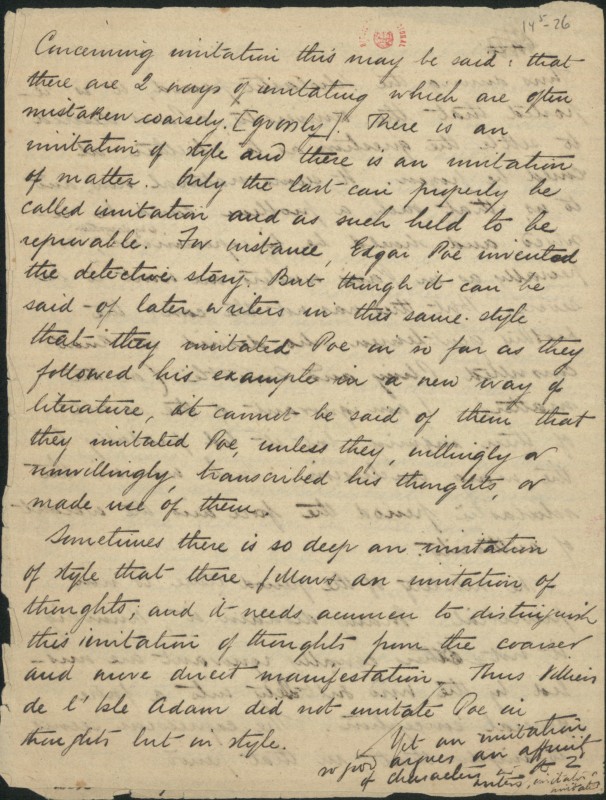 14⁵-26
Concerning imitation this may be said: that
there are 2 ways of imitating which are often
mistaken coarsely. [grossly]. There is an
imitation of style and there is an imitation
of matter. Only the last can properly be
called imitation and as such held to be
reprovable. For instance, Edgar Poe invented
the detective story. But though it can be
said of later writers in this same style
that they imitated Poe in so far as they
followed his example in a new way of
literature, it cannot be said of them that
they imitated Poe, unless they, willingly or
unwillingly, transcribed his thoughts, or
made use of them.
Sometimes there is so deep an imitation
of style that there follows an imitation of
thoughts; and it needs acumen to distinguish
this imitation of thoughts from the coarser
and more direct manifestation. Thus Villiers
de l'Isle Adam did not imitate Poe in
thoughts but in style.
Yet an imitation
so good argues an affinity
of characters in the 2
writers, imitator &
imitated